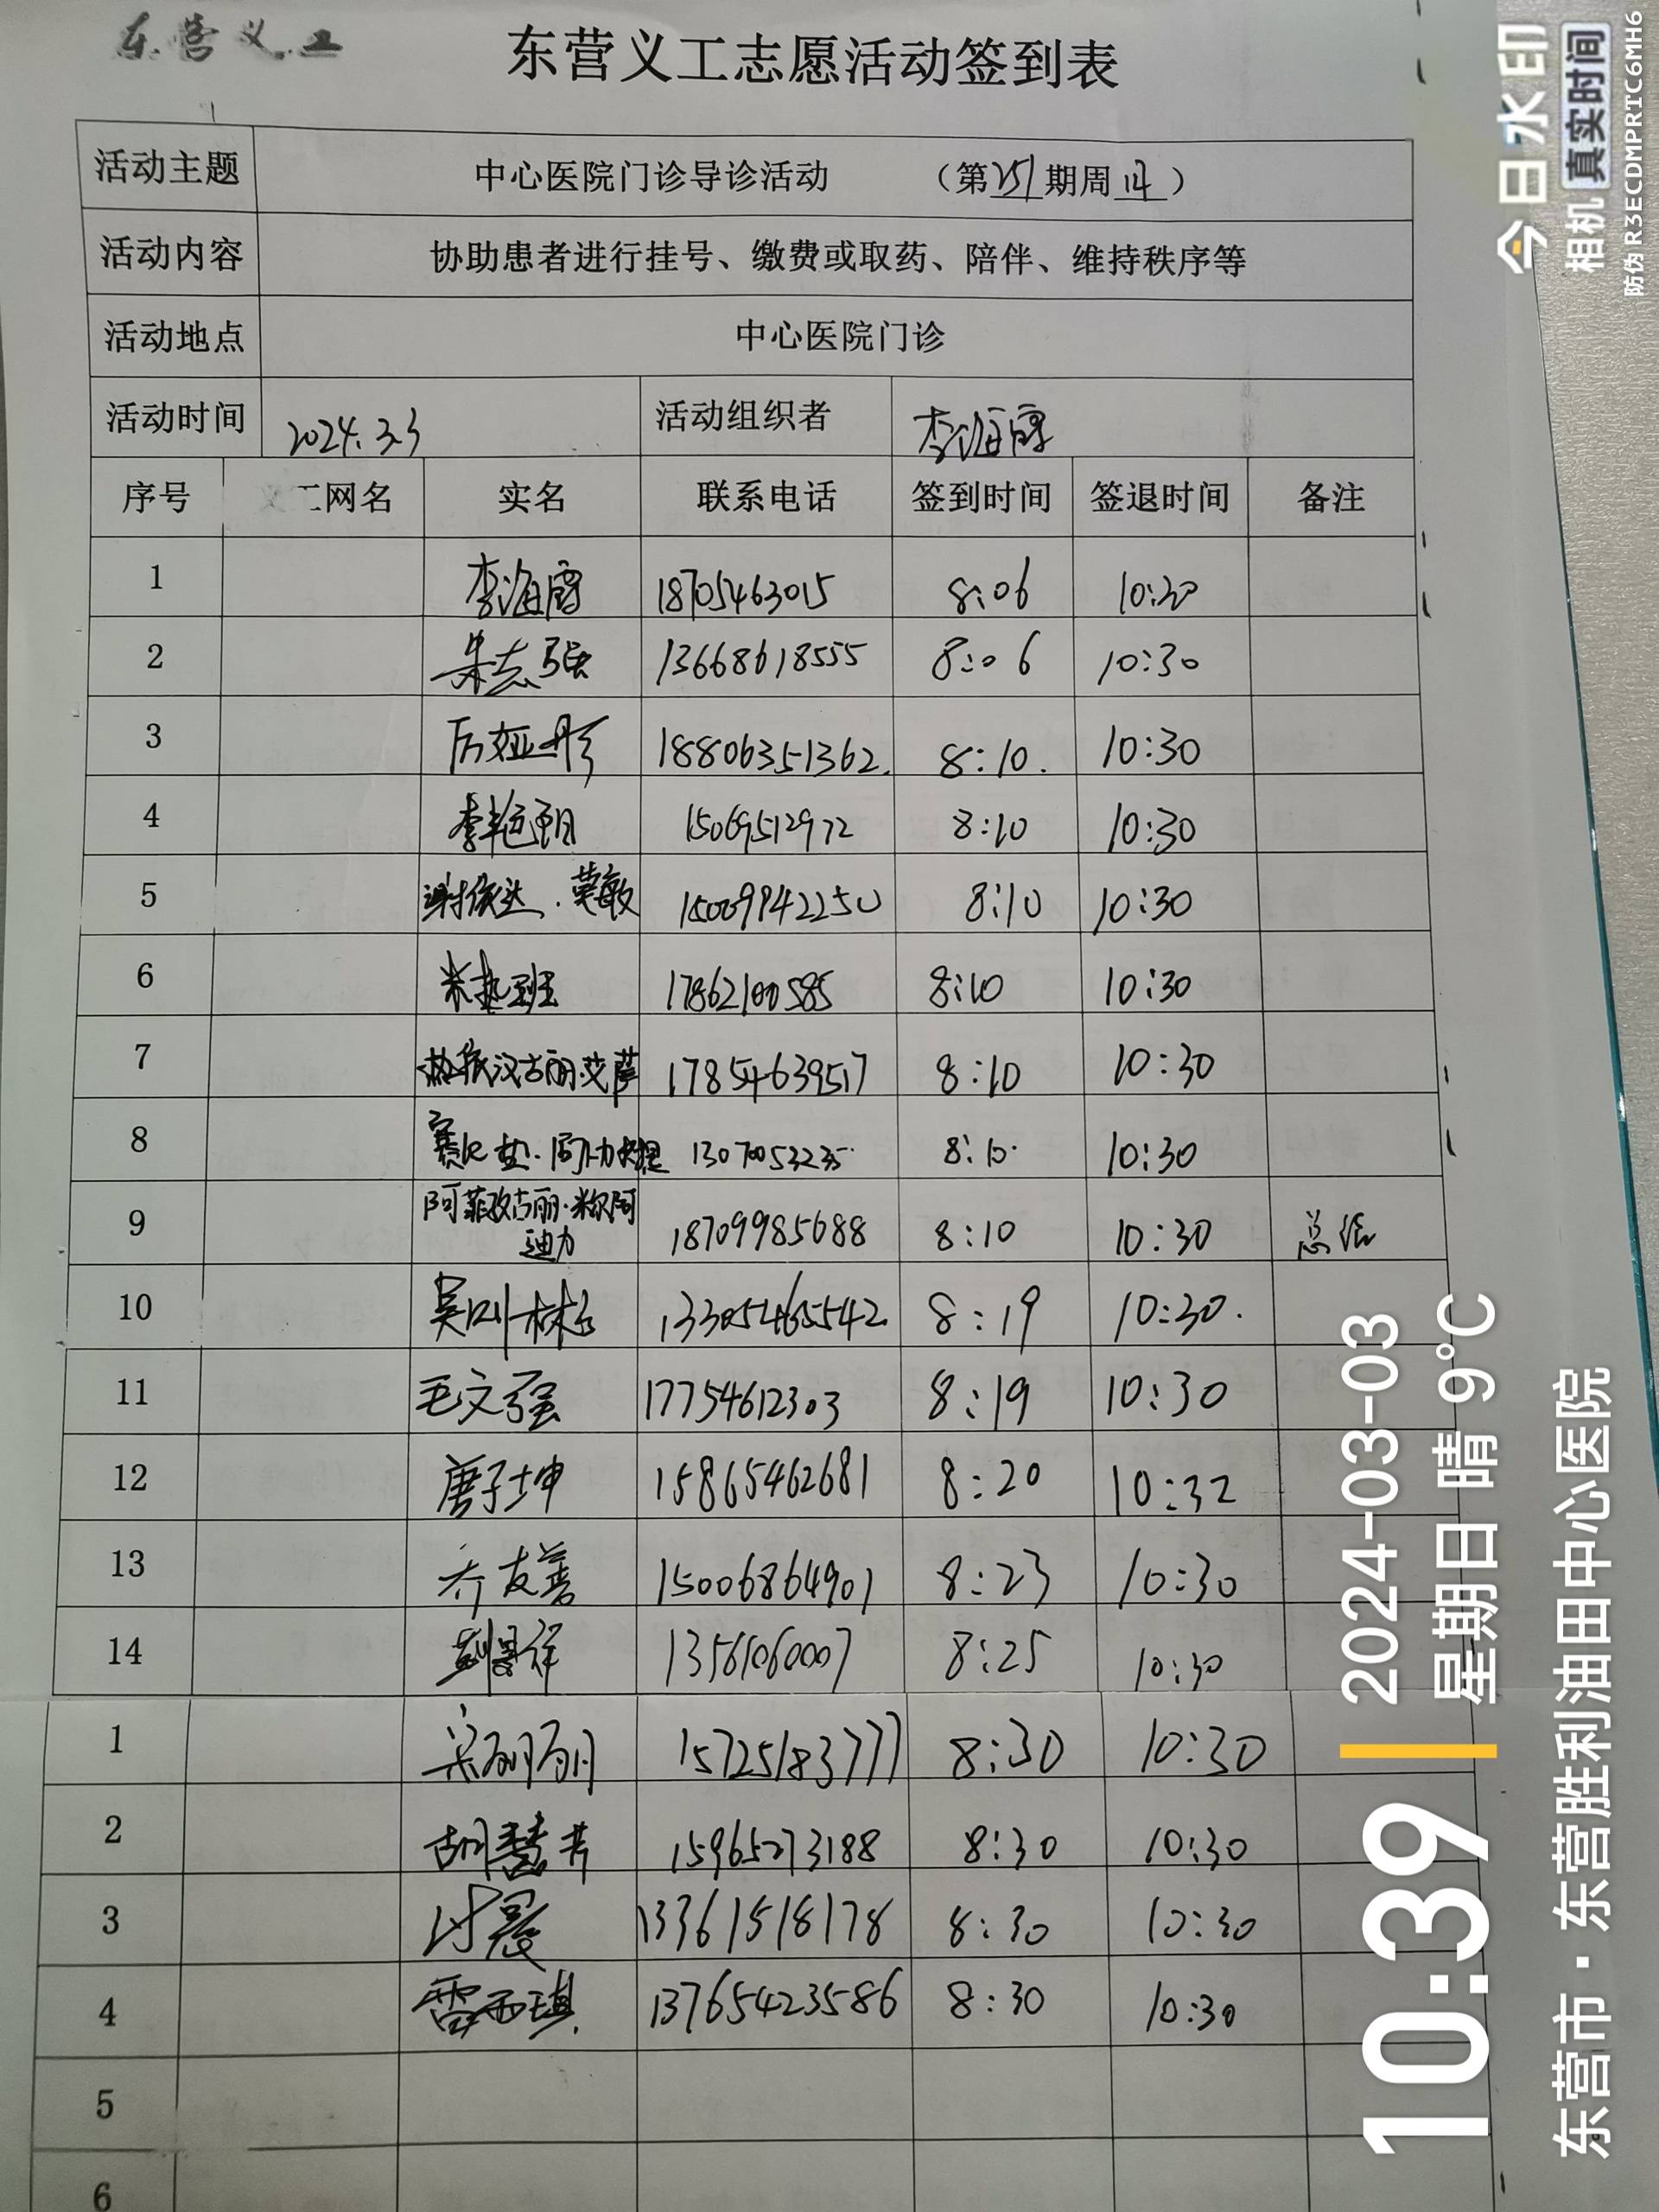 东营义工
东营义工志愿活动签到表
活动主题 中心医院门诊导诊活动 （第251期周四）
活动内容 协助患者进行挂号、缴费或取药、陪伴、维持秩序等
活动地点 中心医院门诊
活动时间 2024.3.3 活动组织者 李海霞
序号 义工网名 实名 联系电话 签到时间 签退时间 备注
1 李海霞 18705463015 8:06 10:30
2 朱志强 13668618555 8:06 10:30
3 厉娅彤 18806351362. 8:10. 10:30
4 15069512972 8:10 10:30
5 谢依达. 15009942250 8:10 10:30
6 米热班 17862100585 8:10 10:30
7 热依汉古丽·艾萨 17854639517 8:10 10:30
8 8:10. 10:30
9 阿菲孜古丽·米尔阿
迪力 18709985688 8:10 10:30 总结
10 吴刚林 13305465542. 8:19 10:30.
11 毛文强 17754612303 8:19 10:30
12 唐子坤 15865462681 8:20 10:32
13 乔友善 15006864901 8:23 10:30
14 13561060007 8:25 10:30
1 15725183777 8:30 10:30
2 胡慧芳 15965273188 8:30 10:30
3 付晨 13361518178 8:30 10:30
4 雷雨琪 13765423586 8:30 10:30
5
6
今日水印
相机 真实时间
防伪 R3ECDMPRTC6MH6
10:39 2024-03-03
星期日 晴 9°C
东营市·东营胜利油田中心医院